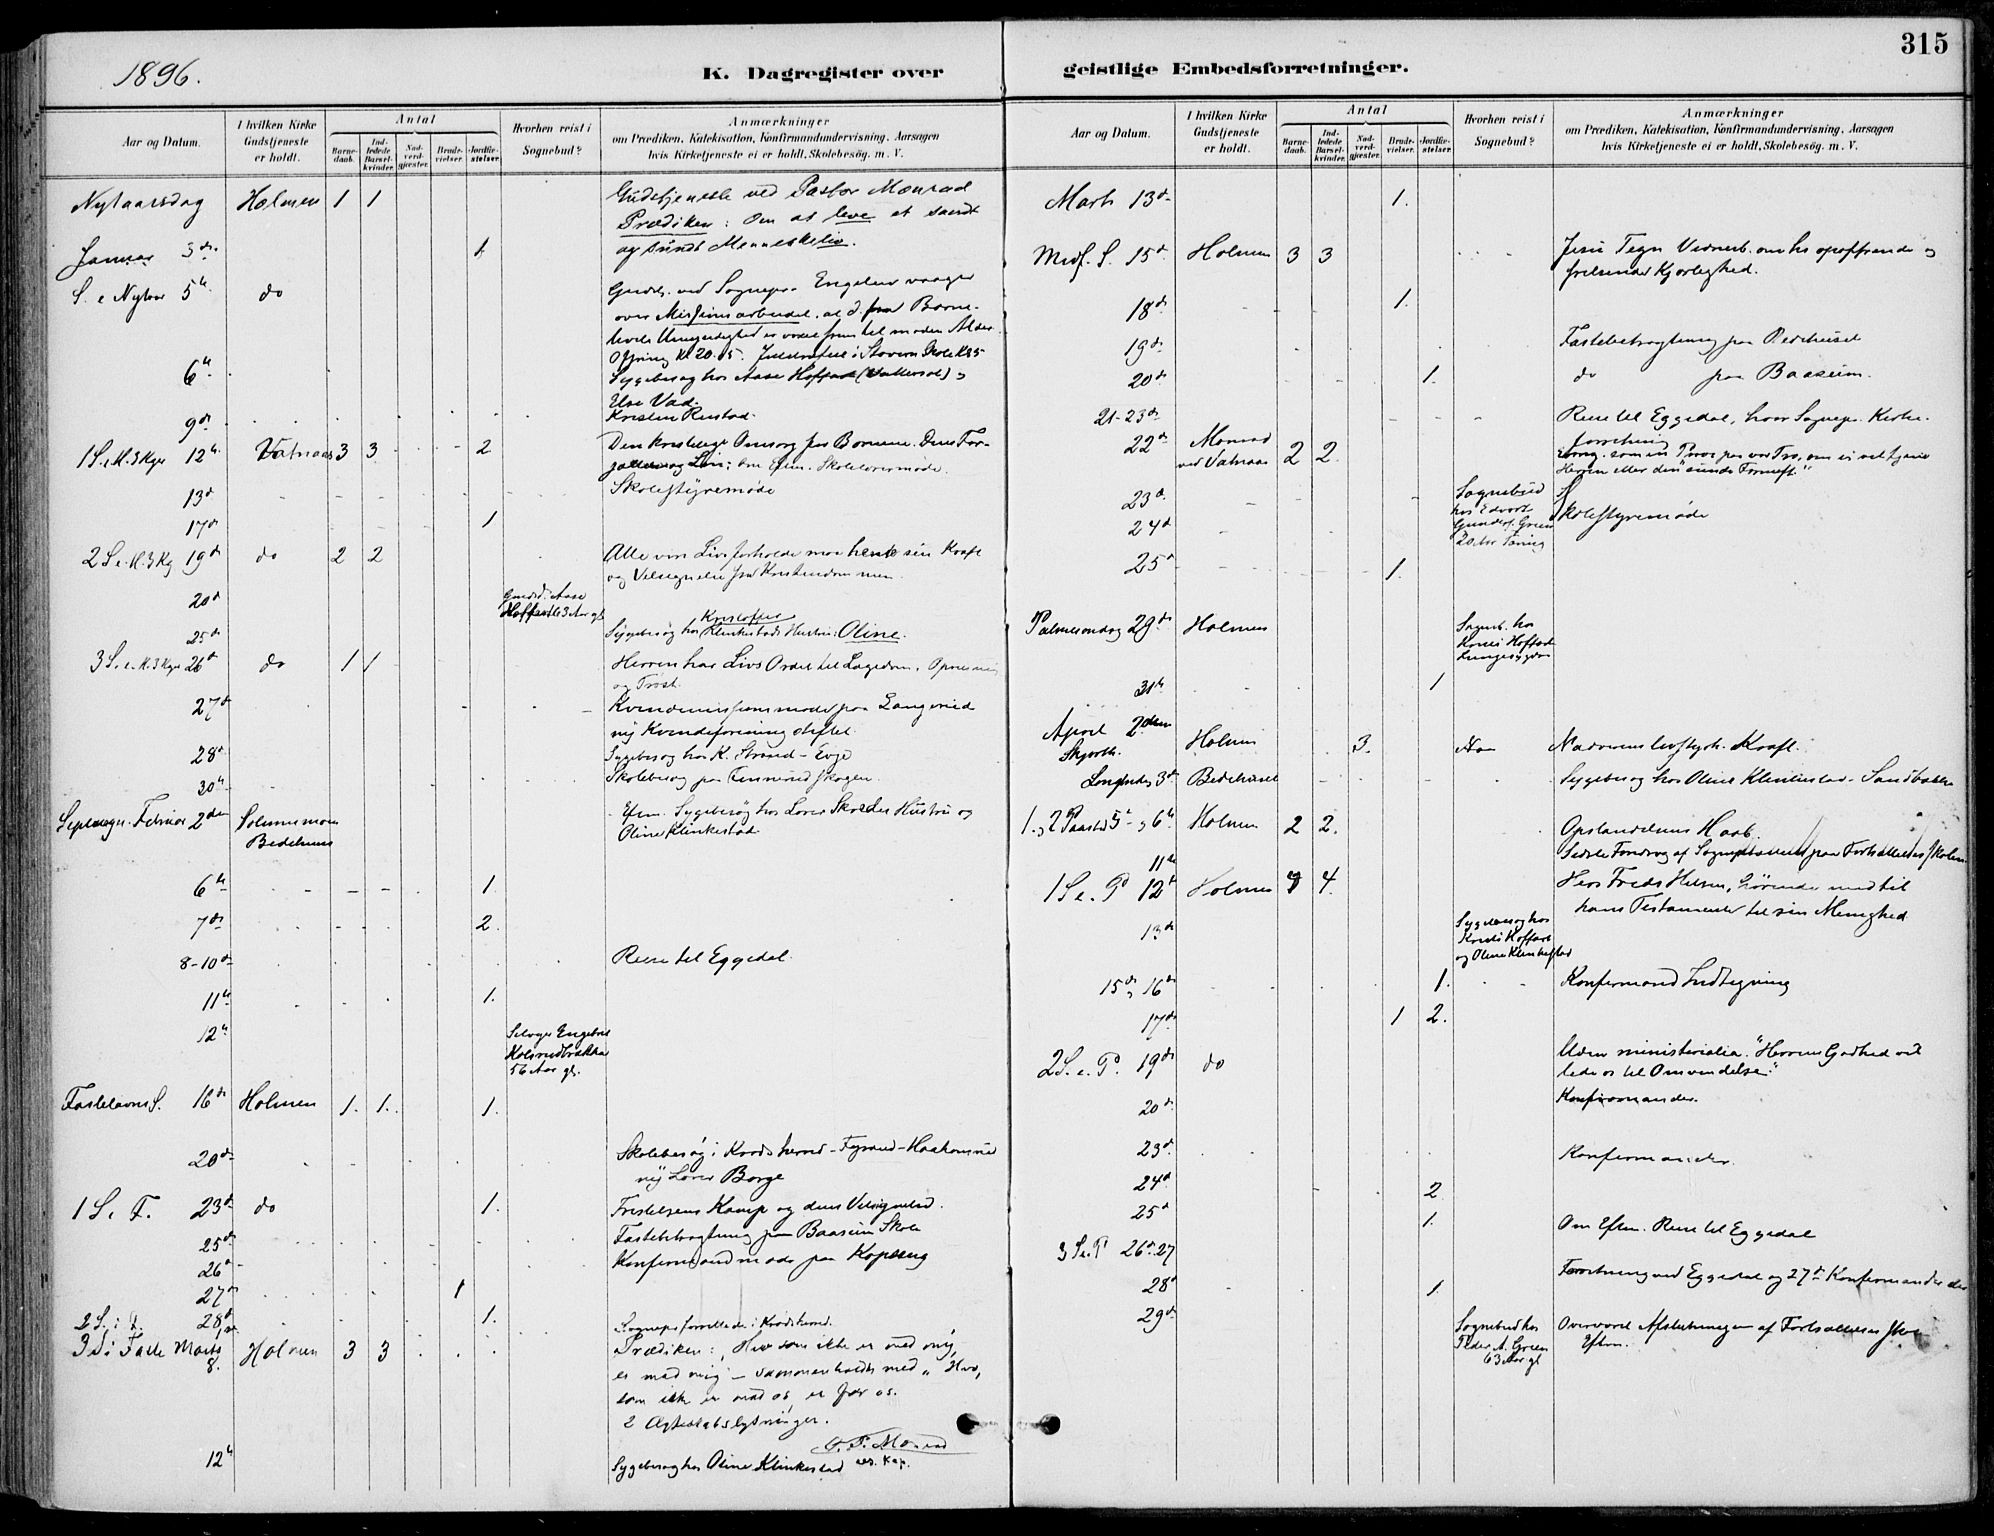 1896.
K. Dagregister over
geistlige Embedsforretninger.
315
Aar og Datum.
I hvilken Kirke Gudstjeneste er holdt.
Antal
Barne-daab.
Ind-ledede Barsel-kvinder.
Nad-verd-gjæster.
Brude-vielser.
Jordfæ-stelser.
Hvorhen reist i Sognebud?
Anmærkninger
om Prædiken, Katekisation, Konfirmandundervisning, Aarsagen
hvis Kirketjeneste ei er holdt, Skolebesög. m. V.
Nytaarsdag Holmen 1 1 Gudstjeneste ved Pastor Monrad
Prædiken: Om at leve et sandt
og sundt Menneskeliv.
Januar 3die 1
S. e Nytaar 5te do Engelen vaager
over Missionsarbeidet
Sygebesøg hos Aase Hoffart
6te
Else Vad.
Kristen Rustad.
9de
1 S. e. H. 3 Kger 12te Vatnaas 3 3 2 Den kristelige Omsorg for Børnene
13de Skolestyremøde
17de 1
2 S. e. H. 3 Kg 19de do 2 2 Alle vore Livsforholde maa hente sin Kraft
og Velsignelse fra Kristendommen
20de Aase
Hoffart 63 Aar gl
25de Sygebesøg hos Kristoffer Klinkestads Hustru: Oline.
3 S. e. H. 3 Kger 26de do 1 1 Herren har Livs Ordet til Lægedom,
og Trøst.
27de Kvindemissionsmøde paa Langerud
ny Kvindeforening stiftet
28de Sygebesøg hos K. Strand - Evje
30te Skolebesøg paa Finnerudskogen.
Februar 2den Solumsmoen Bedehuus
Efm. Sygebesøg hos Lærer Skredes Hustru og
Oline Klinkestad
6te 1.
7de 2.
8-10de Reise til Eggedal.
11te 1.
12te Engebret
56 Aar gl.
Fastelavns S. 16de Holmen 1. 1. 1.
20de Skolebesøg i Krødsherred - Haakonsrud
ny Lærer Borge
1 S. i F. 23de do 1. Fristelsens Kamp og dens Velsignelse.
25de Fastebetragtning paa Baasum Skole
26de Konfirmandmøde paa Kopseng
27de 1
2 S. i F. 28de 1. i Krødsherred
3 S i Faste Marts 8. Holmen 3 3 Prædiken: „Hvo som ikke er med mig,
er mod mig" - sammenholdt med „Hvo,
som ikke er mod os, er for os.
2 Ægteskabslysninger.
O. P. Monrad
res. Kap.
12te Sygebesøg hos Oline Klinkestad
Aar og Datum.
I hvilken Kirke Gudstjeneste er holdt.
Antal
Barne-daab.
Ind-ledede Barsel-kvinder.
Nad-verd-gjæster.
Brude-vielser.
Jordfæ-stelser.
Hvorhen reist i Sognebud?
Anmærkninger
om Prædiken, Katekisation, Konfirmandundervisning, Aarsagen
hvis Kirketjeneste ei er holdt, Skolebesög. m. V.
Marts 13de 1.
Midf. S. 15de Holmen 3 3 Jesu Tegn Vidnesb. om hs opoffrende og
frelsende Kjærlighed.
18de 1.
19de Fastebetragtning paa Bedehuset
20de 1. do paa Baasum.
21-23de Reise til Eggedal, hvor Sognepr. Kirke-
forretning
22de Monrad ved Vatnaas 2 2. som en Prøve paa vor Tro, om vi vil tjene
Herren eller den "sunde Fornuft."
23de Sognebud
hos Edvart
Gunders. Green
Skolestyremøde
24de
25de 1.
Palmesøndag 29de Holmen Sogneb. hos
Hoffart
Lungesygdom
31te 1
April 2den
Skjærth. Holmen 3. Nadverens Kraft.
Langfredag 3de Bedehuset Sygebesøg hos Oline Klinkestad - Sandbakken
1. og 2 Paasked. 5te og 6te Holmen 2 2. Opstandelsens Haab.
11te Sidste Foredrag af Sognepræsten paa Fortsættelsesskolen
1 S. e. P 12te Holmen 4 4. Hers Freds Hilsen, hørende med til
hans Testamente til sin Menighed
13de Sygebesøg hos
Hoffart
og Oline Klinkestad
15de og 16de 1. Konfirmand Indtegning
17de 1 2.
2 S. e. P. 19de do Uden ministerialia. "Herrens Godhed vil
lede os til Omvendelse."
20de Konfirmander.
23de Konfirmander.
24de 2
25de 1. Om Eftm. Reise til Eggedal
3 S. e. P 26de. 27
Forretning ved Eggedal og 27de Konfirmander der
28de 1.
29de Sognebud hos
Peder A. Green
63 Aar gl
Overværet Afslutningen af Fortsættelses Skolen
Eftm.